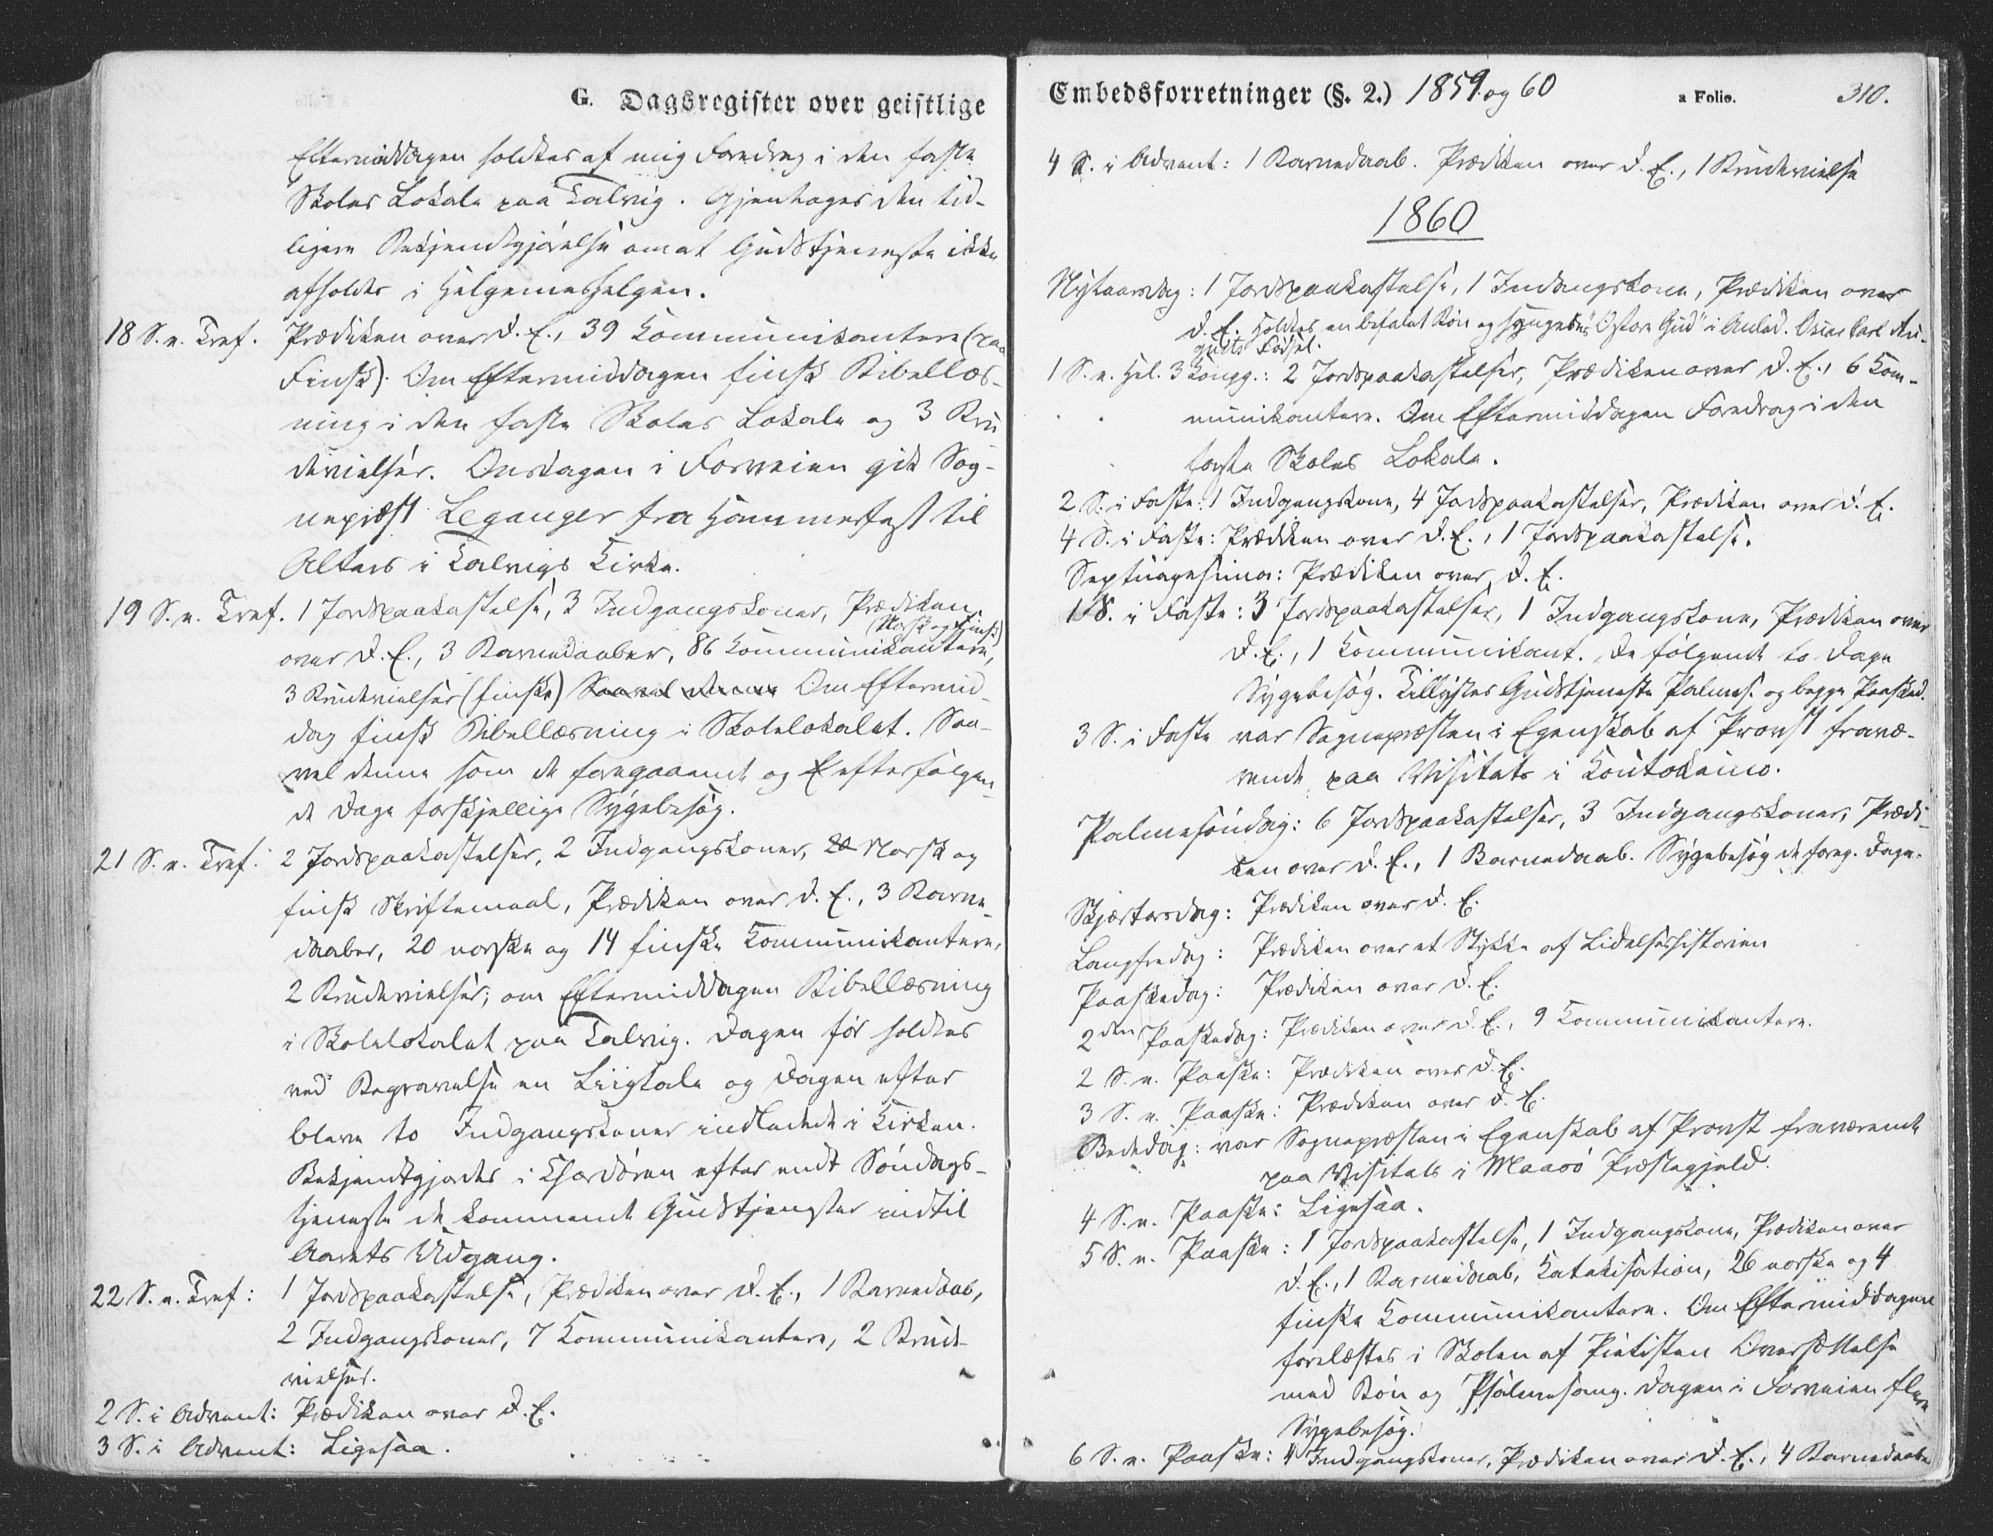 G. Dagsregister over geistlige
Eftermiddagen holdtes af mig Foredrag i den faste
Skoles Lokale paa Talvig. Gjentages den tid-
ligere Bekjendtgjørelse om at Gudstjeneste ikke
afholdes i Helgemeshelgen.
18 S. e. Tref. Prædiken over d. E., 39 Communikantere (paa
Finsk). Om Eftermiddagen finsk Bibellæs-
ning i den faste Skoles Lokale og 3 Bru
devielser. Onsdagen i Forveien gik Sog-
nepræst Leganger fra Hammerfest til
Alters i Talvigs Kirke.
19 S. e. Tref. 1 Jordpaakastelse, 3 Indgangskoner, Prædiken
(Norsk og Finsk)
over d. E., 3 Barnedaaber, 86 Communikantere,
3 Brudevielser (finske) Saavel denne Om Eftermid-
dag finsk Bibellæsning i Skolelokalet. Saa-
vel denne som de foregaaende og Eefterfølgen-
de Dage forskjellige Sygebesøg.
21 S. e. Tref: 2 Jordpaakastelser, 2 Indgangskoner, Norsk og
finsk Skriftemaal, Prædiken over d. E., 3 Barne-
daaber, 20 norske og 14 finske Communikantere,
2 Brudevielser; om Eftermiddagen Bibellæsning
i Skolelokalet paa Talvig. Dagen før holdtes
ved Begravelse en Liigtale og Dagen efter
bleve to Indgangskoner indledede i Kirken.
Bekjendtgjordes i Chordøren efter endt Søndags-
tjeneste de kommende Gudstjenester indtil
Aarets Udgang.
22 S. e. Tref: 1 Jordpaakastelse, Prædiken over d. E., 1 Barnedaab,
2 Indgangskoner, 7 Communikantere, 2 Brude-
vielser.
2 S. i Advent: Prædiken over d. E.
3 S. i Advent: Ligesaa.
Embedsforretninger (§. 2.) 1859 og 60 a Folio. 310.
4 S. i Advent: 1 Barnedaab. Prædiken over d. E., 1 Brudevielse
1860
Nytaarsdag: 1 Jordpaakastelse, 1 Indgangskone, Prædiken over
d. E. Holdtes en befalet Bøn og synges "O store Gud" i Anled. Oscar Carl Au-
gusts Fødsel.
1 S. e. Hel. 3 Kongg.: 2 Jordpaakastelser, Prædiken over d. E., 6 Com-
munikantere. Om Eftermiddagen Foredrag i den
faste Skoles Lokale.
2 S. i Faste: 1 Indgangskone, 4 Jordpaakastelser, Prædiken over d. E.
4 S. i Faste: Prædiken over d. E., 1 Jordpaakastelse.
Septuagesima: Prædiken over d. E.
1 S. i Faste: 3 Jordpaakastelser, 1 Indgangskone, Prædiken over
d. E., 1 Communikant. De følgende to Dage
Sygebesøg. Tillystes Gudstjeneste Palmes. og begge Paasked.
3 S. i Faste var Sognepræsten i Egenskab af Provst fravæ-
rende paa Visitats i Koutokeino.
Palmesøndag: 6 Jordpaakastelser, 3 Indgangskoner, Prædi-
ken over d. E., 1 Barnedaab. Sygebesøg de foreg. Dage.
Skjærtorsdag: Prædiken over d. E.
Langfredag: Prædiken over et Stykke af Lidelseshistorien
Paaskedag: Prædiken over d. E.
2den Paaskedag: Prædiken over d. E., 9 Communikantere.
2 S. e. Paaske: Prædiken over d. E.
3 S. e. Paaske: Prædiken over d. E.
Bededag: var Sognepræsten i Egenskab af Provst fraværende
paa Visitats i Maasø Præstegjeld.
4 S. e. Paaske: Ligesaa.
5 S. e. Paaske: 1 Jordpaakastelse, 1 Indgangskone, Prædiken over
d. E., 1 Barnedaab, Katekisation, 26 norske og 4
finske Communikantere. Om Eftermiddagen
forelæstes i Skolen af Pietisten Oversættelse
med Bøn og Psalmesang. Dagen i Forveien flere
Sygebesøg.
6 S. e. Paaske: 4 Indgangskoner, Prædiken over d. E., 4 Barnedaabe